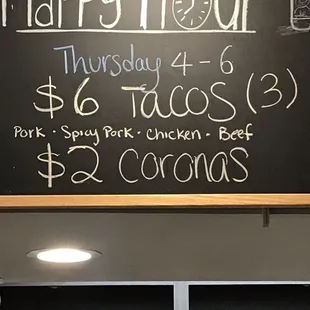 Happy Hour
Thursday 4-6
$6 Tacos (3)
Pork · Spicy Pork · Chicken · Beef
$2 Coronas